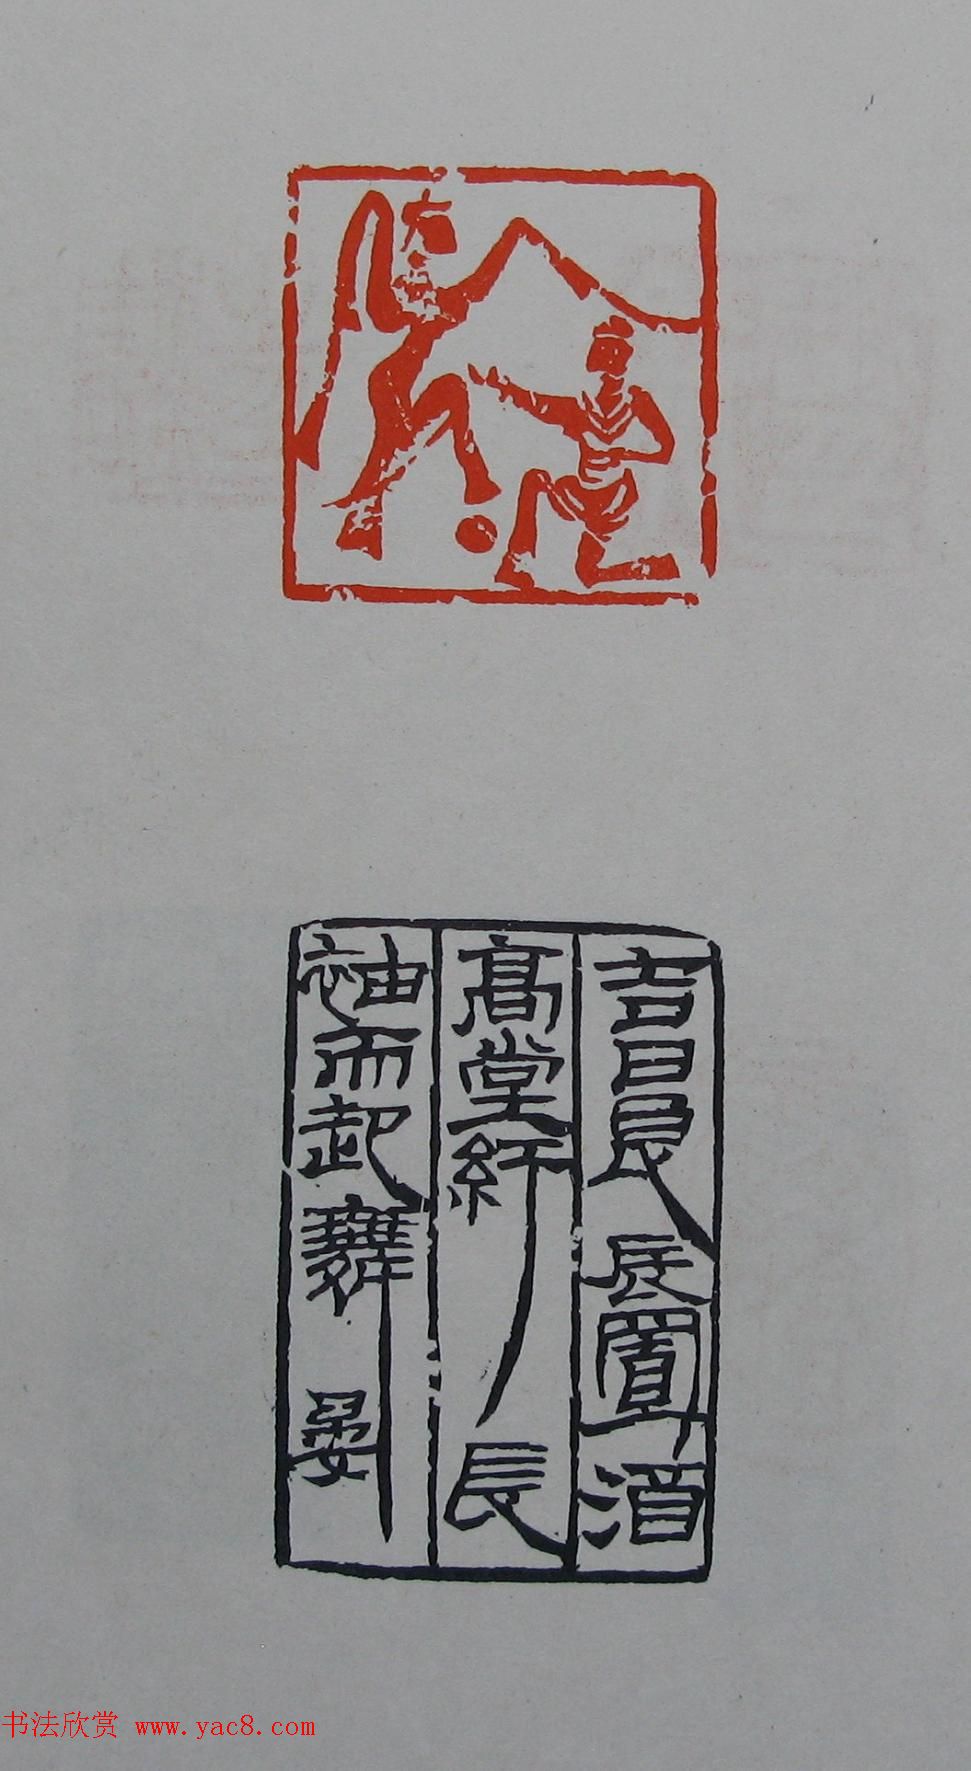 吉日良辰置酒
高堂紆長
袖而起舞 晏
书法欣赏 www.yac8.com